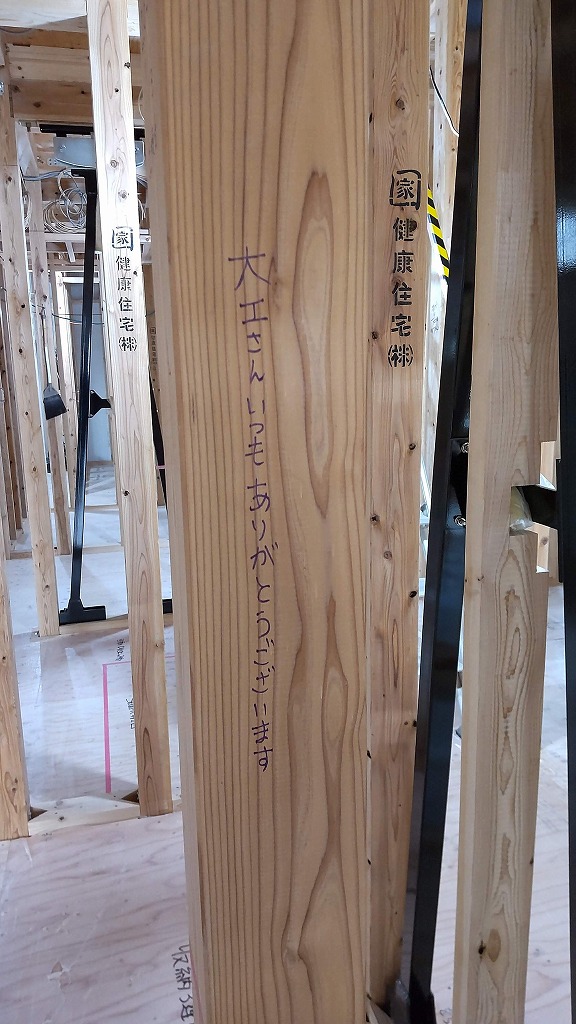 大工さんいつもありがとうございます
家
健康住宅㈱
家
健康住宅㈱
収納